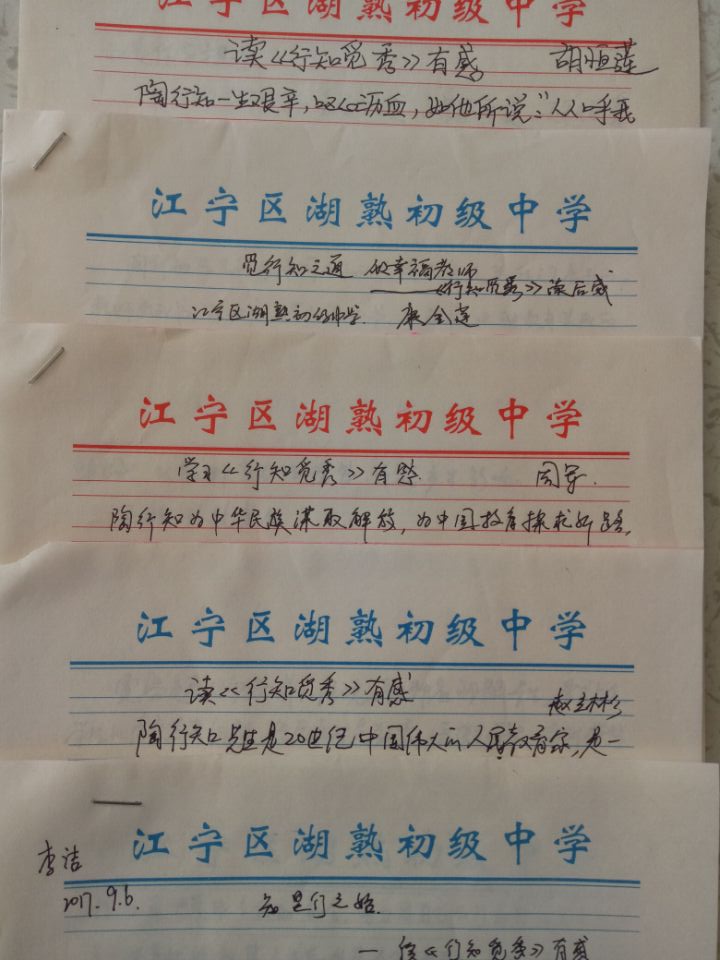 江宁区湖熟初级中学
读《行知觅秀》有感 胡恒莲
陶行知一生艰辛,呕心沥血,如他所说:"人人呼我
江宁区湖熟初级中学
觅行知之道 做幸福教师
——《行知觅秀》读后感
江宁区湖熟初级中学 康金莲
江宁区湖熟初级中学
学习《行知觅秀》有感 周军
陶行知为中华民族谋取解放,为中国教育探求新路,
江宁区湖熟初级中学
读《行知觅秀》有感
陶行知先生是20世纪中国伟大的人民教育家,是一
江宁区湖熟初级中学
李洁
2017.9.6.
知是行之始
—读《行知觅秀》有感